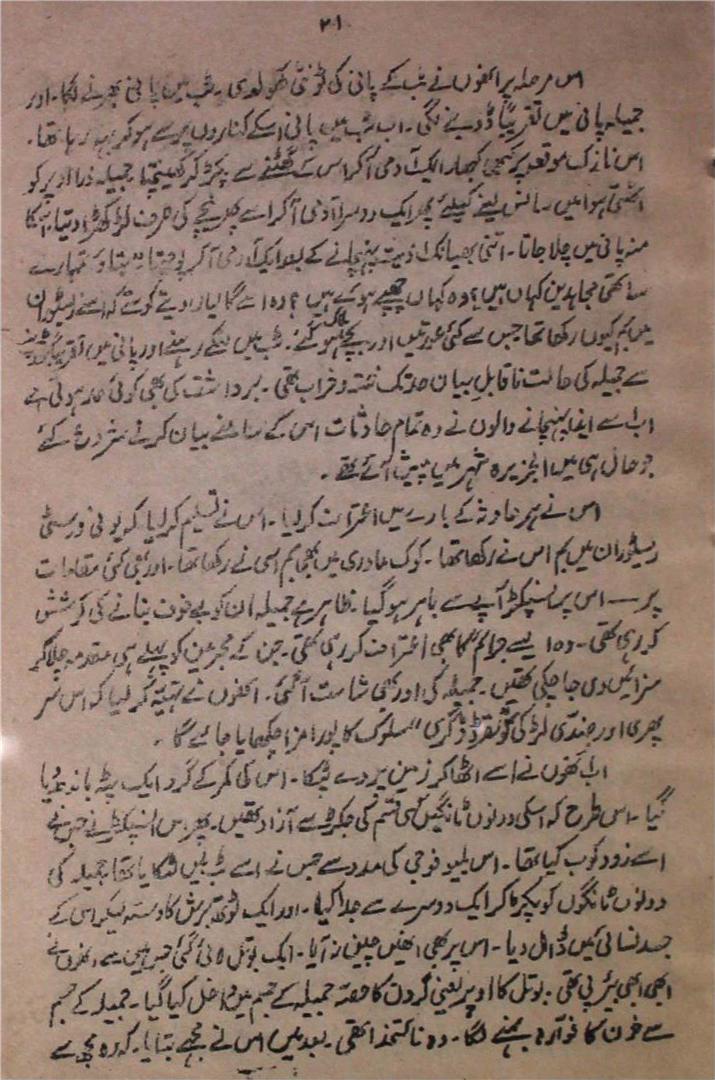 ۲۱
اس مرحلہ پر انھوں نے ٹب کے پانی کی ٹونٹی کھولدی۔ ٹب میں پانی بھرنے لگا۔ اور
جمیلہ پانی میں تقریباً ڈوبنے لگی۔ اب ٹب میں پانی اسکے کناروں پر سے ہو کر بہہ رہا تھا۔
اس نازک موقعہ پر کبھی کبھار ایک آدمی آکر اس کے گھٹنے سے پکڑ کر کھینچتا۔ جمیلہ ذرا اوپر کو
اٹھتی ہوا میں سانس لینے کیلئے پھر ایک دوسرا آدمی آکر اسے پھر نیچے کی طرف لڑکھڑا دیتا، اسکا
منہ پانی میں چلا جاتا۔ اتنی بھیانک اذیت پہنچانے کے بعد ایک آدمی آکر پوچھتا۔ بتاؤ تمہارے
ساتھی مجاہدین کہاں ہیں؟ وہ کہاں چھپے ہوئے ہیں؟ وہ اسے گالیاں دیتے کوستے کہ اسنے ریسٹوران
میں بم کیوں رکھا تھا جس سے کئی عورتیں اور بچے ہلاک ہو گئے۔ ٹب میں لٹکے رہنے اور پانی میں تقریباً ڈوبنے
سے جمیلہ کی حالت ناقابلِ بیان حد تک خستہ و خراب تھی۔ برداشت کی بھی کوئی حد ہوتی ہے
اب اسے ایذا پہنچانے والوں نے وہ تمام حادثات اسی کے سامنے بیان کرنے شروع کئے
جو حال ہی میں الجزیرہ شہر میں پیش آئے تھے۔
اس نے ہر حادثہ کے بارے میں اعتراف کرلیا۔ اس نے تسلیم کرلیا کہ یونی ورسٹی
ریسٹوران میں بم اس نے رکھا تھا۔ کوک ہاردی میں بھی بم اسی نے رکھا تھا۔ اور بھی کئی مقامات
پر — اس پر انسپکٹر آپے سے باہر ہو گیا۔ ظاہر ہے جمیلہ ان کو بے وقوف بنانے کی کوشش
کر رہی تھی۔ وہ ایسے جرائم کا بھی اعتراف کر رہی تھی۔ جن کے مجرمین کو پہلے ہی مقدمہ چلا کر
سزائیں دی جا چکی تھیں۔ جمیلہ کی اور بھی شامت آگئی۔ انھوں نے تہیّہ کر لیا کہ اس سر
پھری اور ضدّی لڑکی کو تھرڈ ڈگری "سلوک" کا پورا مزا چکھایا جائے گا۔
اب انھوں نے اسے اٹھا کر زمین پر دے پٹکا۔ اس کی کمر کے گرد ایک پٹہ باندھ دیا
گیا۔ اس طرح کہ اسکی دونوں ٹانگیں کسی قسم کی جکڑ سے آزاد تھیں۔ پھر اس انسپکٹر نے جس نے
اسے زدوکوب کیا تھا۔ اس فوجی کی مدد سے جس نے اسے ٹب میں لٹکایا تھا جمیلہ کی
دونوں ٹانگوں کو پکڑ کر ایک دوسرے سے جدا کیا۔ اور ایک ٹوتھ برش کا دستہ لیکر اس کے
جسد نسائی میں ڈال دیا۔ اس پر بھی انھیں چین نہ آیا۔ ایک بوتل لائی گئی جس میں سے انھوں نے
ابھی ابھی بیئر پی تھی۔ بوتل کا اوپر یعنی گردن کا حصّہ جمیلہ کے جسم میں داخل کیا گیا۔ جمیلہ کے جسم
سے خون کا فوّارہ بہنے لگا۔ وہ ناکتخدا تھی۔ بعد میں اس نے مجھے بتایا۔ کہ وہ مجھ سے